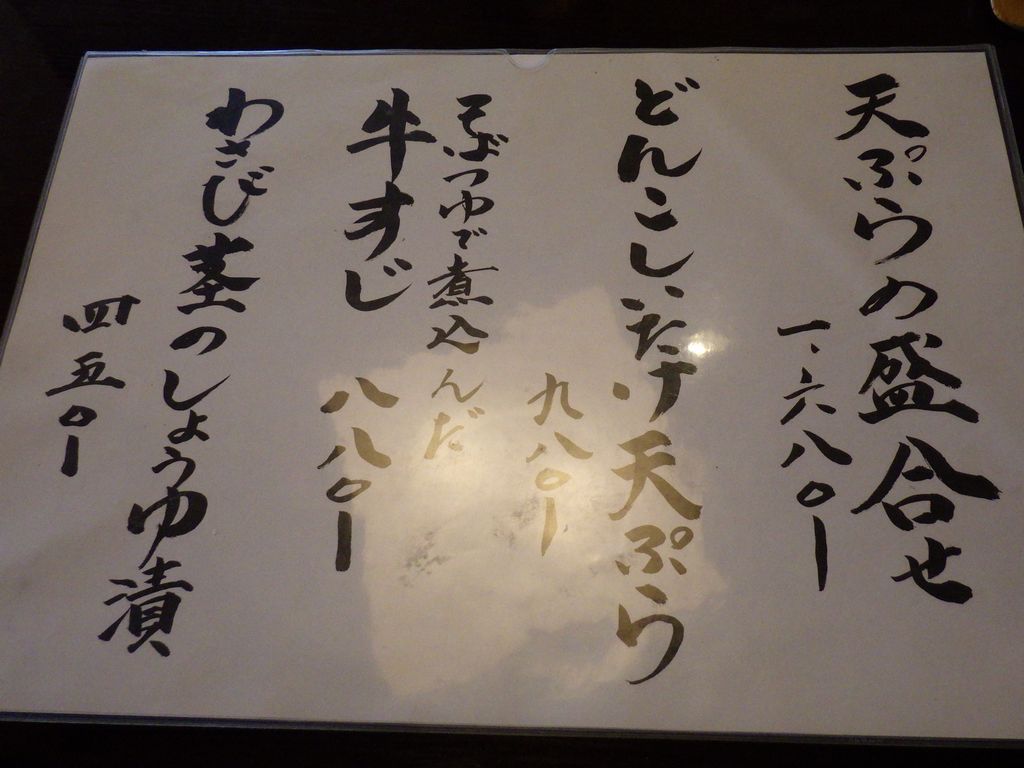 天ぷらの盛合せ
一、六八〇ー
どんこしいたけ天ぷら
九八〇ー
そばつゆで煮込んだ
牛すじ
八八〇ー
わさび茎のしょうゆ漬
四五〇ー